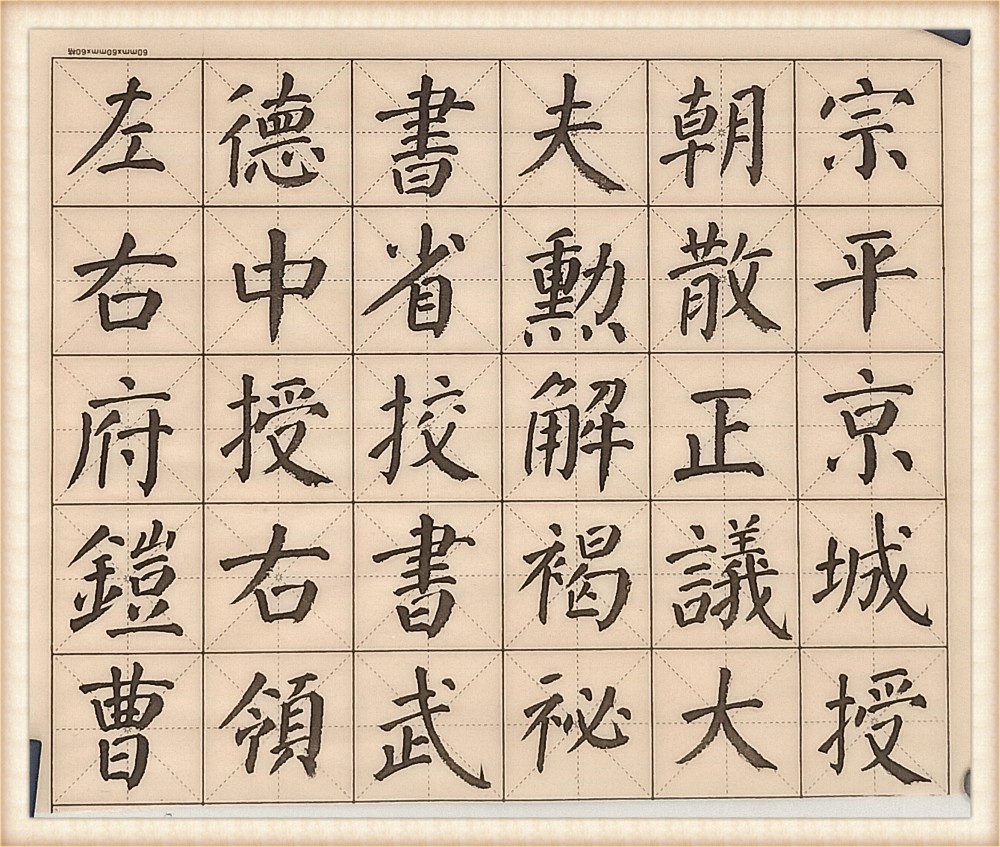 50mm×50mm×60格
宗平京城授
朝散正議大
夫勲解褐祕
書省挍書武
德中授右領
左右府鎧曹